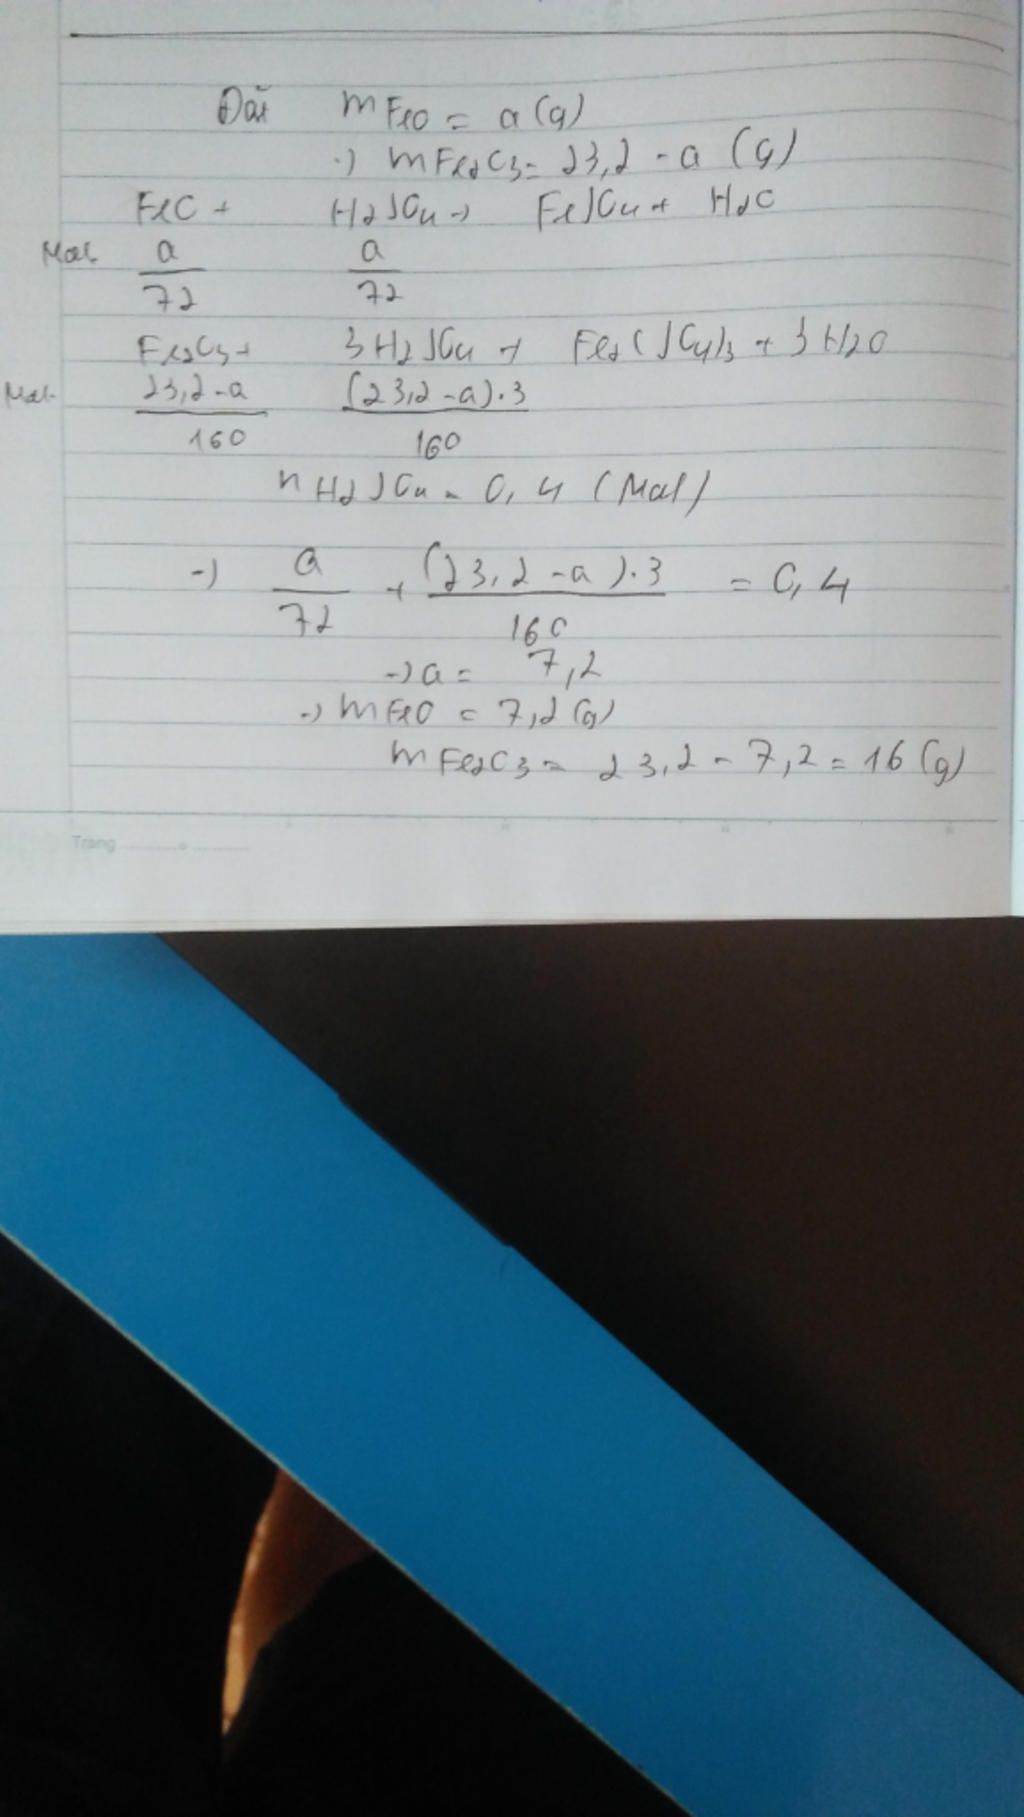 Đặt mFeO = a (g)
-) mFe2O3 = 23,2 - a (g)
FeO + H2SO4 -) FeSO4 + H2O
Mol a/72 a/72
Fe2O3 + 3H2SO4 -) Fe2(SO4)3 + 3H2O
Mol (23,2 - a)/160 (23,2 - a).3/160
nH2SO4 = 0,4 (Mol)
-) a/72 + (23,2 - a).3/160 = 0,4
-) a = 7,2
-) mFeO = 7,2 (g)
mFe2O3 = 23,2 - 7,2 = 16 (g)
Trang